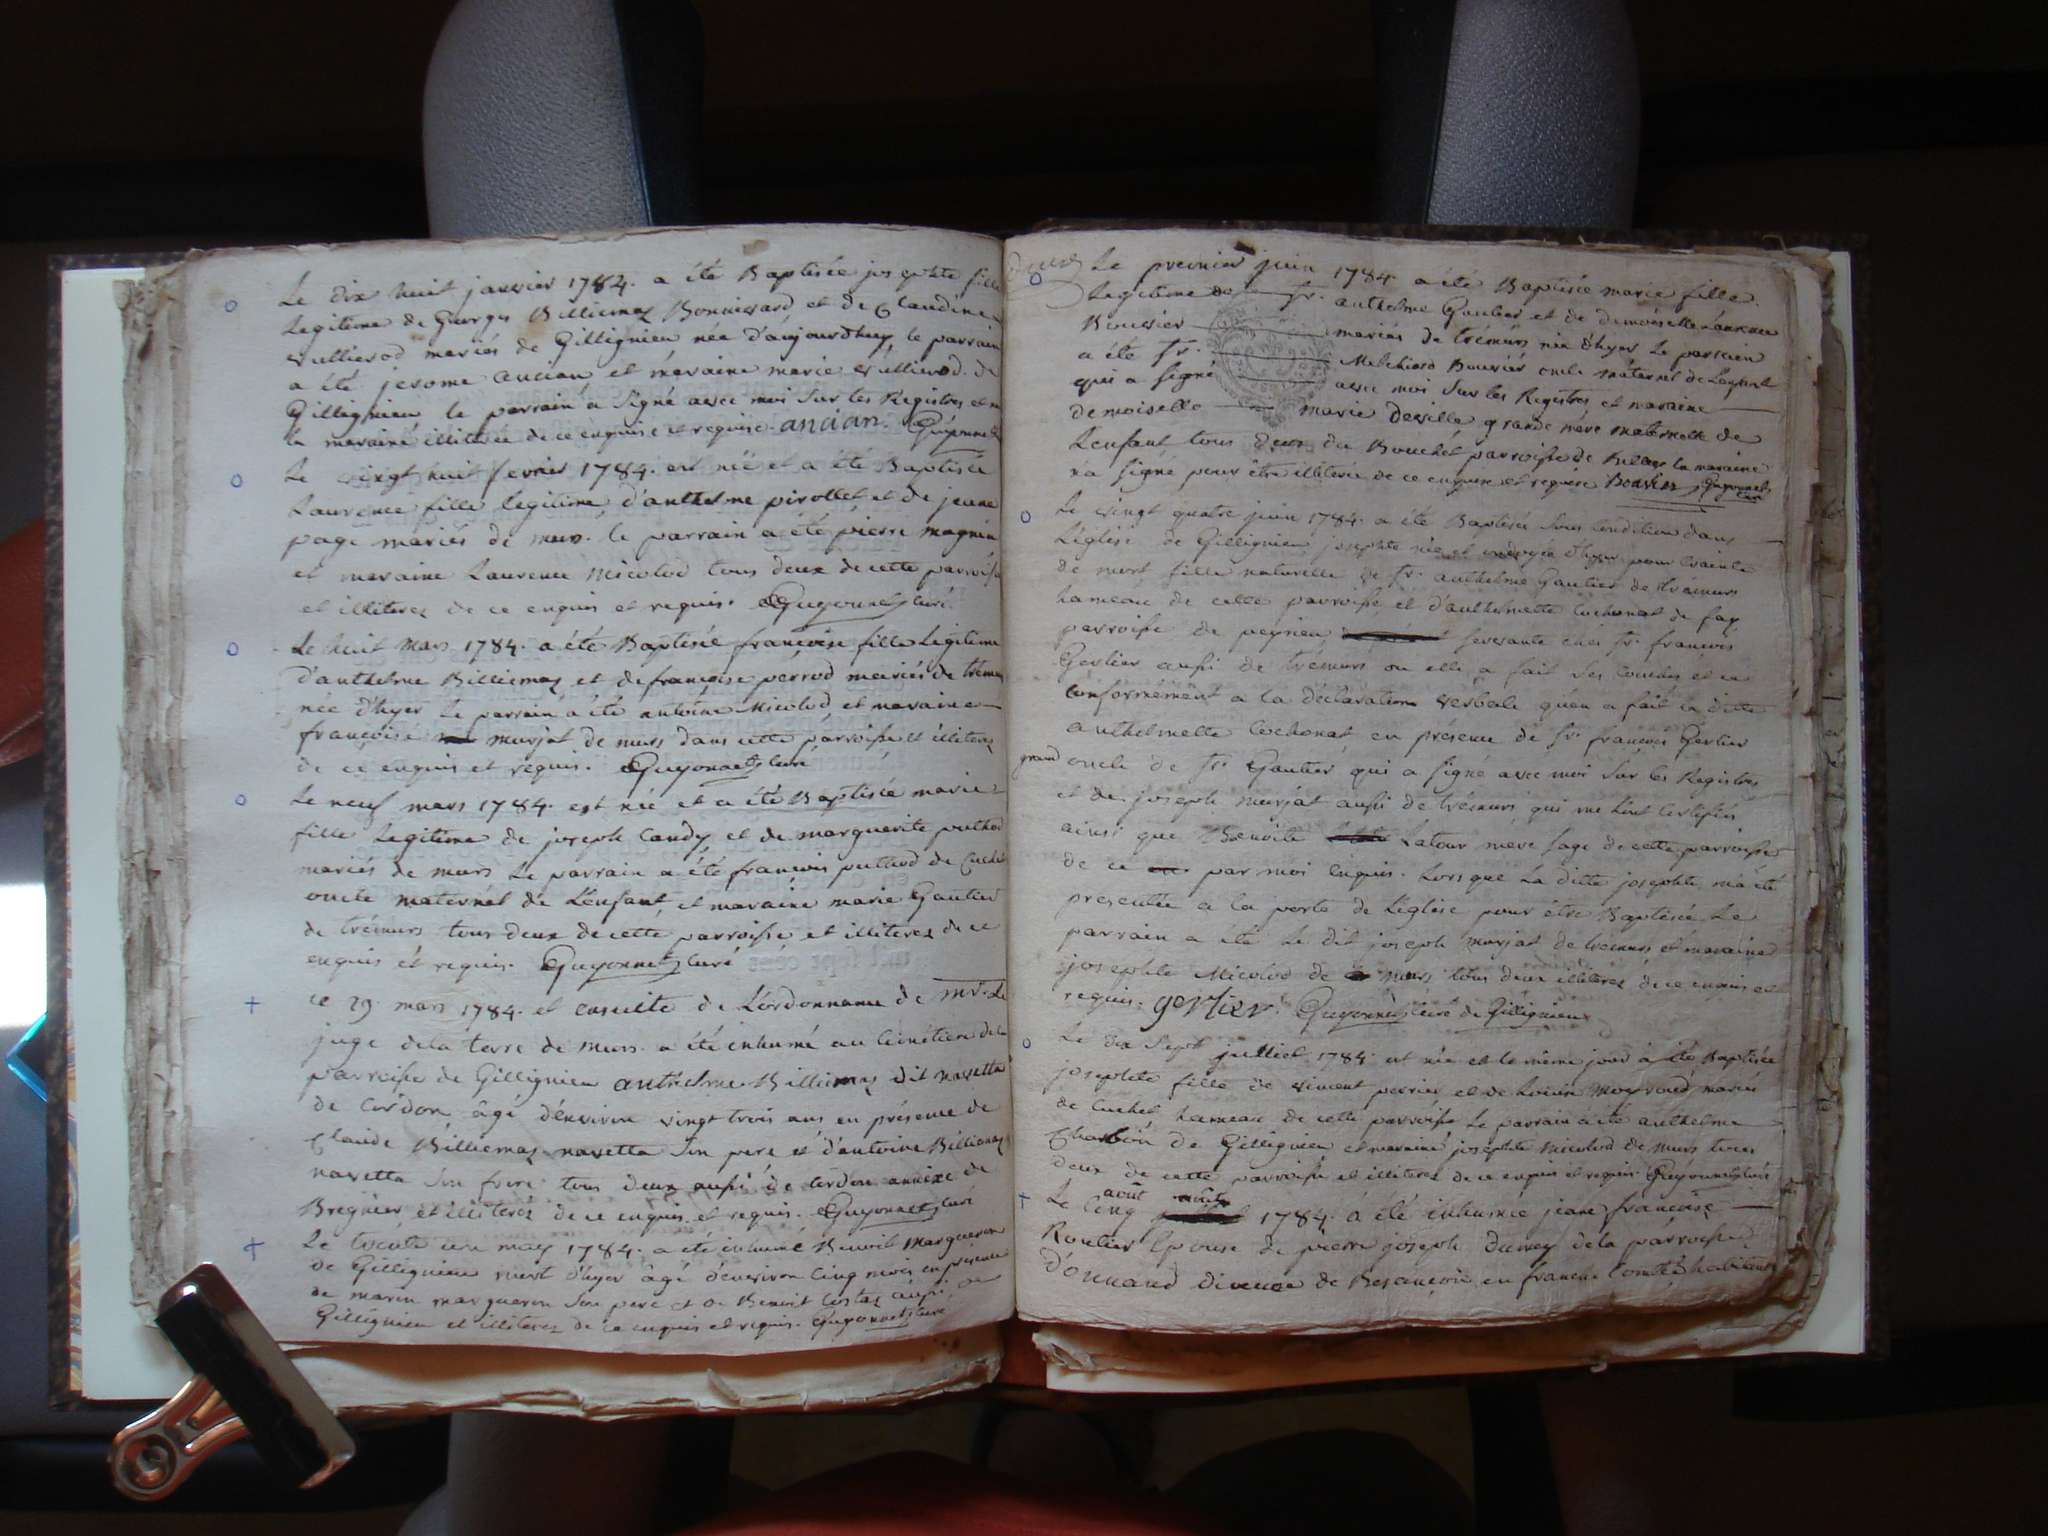 Le dix huit janvier 1784. a été Baptisée josephte fille
Legitime de George Billiemaz Bonnivard et de Claudine
Vullierod mariés de Gillignieu née d'aujourdhuy, le parrain
a été jerome ancian et maraine marie Vullierod. de
Gillignieu le parrain a signé avec moi sur les Registres et
la maraine illiterée de ce enquise et requise. ancian. Guyonnet
Le vingt huit fevrier 1784. est née et a été Baptisée
Laurence fille legitime d'anthelme pirollet et de jeane
page mariés de murs. le parrain a été pierre magnin
et maraine Laurence Micolod tous deux de cette parroisse
et illiterez de ce enquis et requis. Guyonnet curé
Le huit Mars 1784. a été Baptisée françoise fille Legitime
d'anthelme Billiemaz et de françoise perrod mariés de trémurs
née d'hyer Le parrain a été antoine Micolod et maraine
françoise murjat de murs dans cette parroisse et illiterez
de ce enquis et requis. Guyonnet curé
Le neuf mars 1784. est née et a été Baptisée marie
fille Legitime de joseph Candy et de marguerite puthod
mariés de murs Le parrain a été françois puthod de Cuchet
oncle maternel de L'enfant et maraine marie Gautier
de trémurs tous deux de cette parroisse et illiterez de ce
enquis et requis. Guyonnet curé
Ce 29. mars 1784. et ensuite de L'ordonnance de Mr. Le
juge de la terre de Murs. a été inhumé au Cimétière de la
parroisse de Gillignieu anthelme Billiemaz dit navetta
de Cordon âgé d'environ vingt trois ans en présence de
Claude Billiemaz navetta son pere et d'antoine Billiemaz
navetta son frere tous deux aussi de Cordon annexe de
Bregnier et illiterés de ce enquis et requis. Guyonnet curé
Le trente un may 1784. a été inhumé Benoit Margueron
de Gillignieu mort d'hyer âgé d'environ Cinq mois en présence
de marin margueron son pere et de Benoit Costaz aussi de
Gillignieu et illiterez de ce enquis et requis. Guyonnet curé
Le premier juin 1784. a été Baptisée marie fille
Legitime de Sr. anthelme Gautier et de demoiselle
Bouvier mariés de trémurs née d'hyer Le parrain
a été Sr. Melchiord Bouvier oncle maternel de L'enfant
qui a signé avec moi sur les Registres et maraine
demoiselle marie deville grande mére maternelle de
L'enfant, tous deux du Bouchet parroisse de la maraine
n'a signé pour être illiterée de ce enquise et requise Bouvier Guyonnet curé
Le vingt quatre juin 1784. a été Baptisée sous condition dans
L'église de Gillignieu josephte née et ondoyée d'hyer pour crainte
de mort fille naturelle de Sr. anthelme Gautier de trémurs
hameau de cette parroisse et d'anthelmette Cochonat de fay
parroisse de peyrieu servante chés Sr. françois
Gerlier aussi de trémurs ou elle a fait ses couches et ce
conformément a la déclaration verbale qu'en a fait la ditte
anthelmette Cochonat en présence de Sr. françois Gerlier
grand oncle de Sr. Gautier qui a signé avec moi sur les Registres
et de joseph murjat aussi de trémurs qui me l'ont certifiés
ainsi que Benoite Latour mere sage de cette parroisse
de ce par moi enquis. Lorsque La ditte josephte m'a été
presentée a la porte de L'église pour être Baptisée. Le
parrain a été Le dit joseph murjat de trémurs et maraine
josephte Micolod de murs tous deux illiterez de ce enquis et
requis. gerlier. Guyonnet curé de Gillignieu
Le dix sept julliet 1784. est née et le même jour a été Baptisée
josephte fille de vincent perrier et de Louise Moyroud mariés
de Cuchet hameau de cette parroisse Le parrain a été anthelme
Charbon de Gillignieu et maraine josephte Micolod de murs tous
deux de cette parroisse et illiterez de ce enquis et requis. Guyonnet curé
août
Le Cinq 1784. a été inhumée jeane françoise
Routier Epouse de pierre joseph durey de la parroisse
d'ounand diocese de Besançon en franche Comté habitants